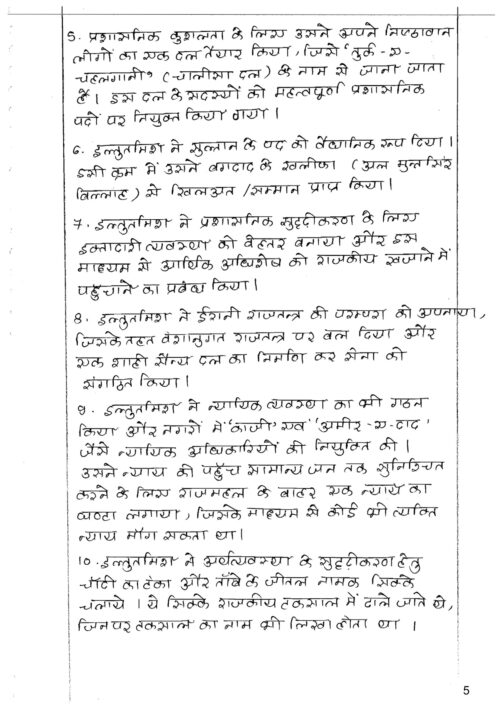 5. प्रशासनिक कुशलता के लिए उसने अपने निष्ठावान
लोगों का एक दल तैयार किया, जिसे 'तुर्क-ए-
चहलगानी' (चालीसा दल) के नाम से जाना जाता
है। इस दल के सदस्यों को महत्वपूर्ण प्रशासनिक
पदों पर नियुक्त किया गया।
6. इल्तुतमिश ने सुल्तान के पद को वैधानिक रूप दिया।
इसी क्रम में उसने बगदाद के खलीफा (अल मुन्तसिर
बिल्लाह) से खिलअत /सम्मान प्राप्त किया।
7. इल्तुतमिश ने प्रशासनिक सुदृढीकरण के लिए
इक्तादारी व्यवस्था को बेहतर बनाया और इस
माध्यम से आर्थिक अधिशेष को राजकीय खजाने में
पहुँचाने का प्रबंध किया।
8. इल्तुतमिश ने ईरानी राजतन्त्र की परम्परा को अपनाया,
जिसके तहत वंशानुगत राजतन्त्र पर बल दिया और
एक शाही सैन्य दल का निर्माण कर सेना को
संगठित किया।
9. इल्तुतमिश ने न्यायिक व्यवस्था का भी गठन
किया और नगरों में 'काजी' एवं 'अमीर-ए-दाद'
जैसे न्यायिक अधिकारियों की नियुक्ति की।
उसने न्याय की पहुँच सामान्य जन तक सुनिश्चित
करने के लिए राजमहल के बाहर एक न्याय का
घण्टा लगाया, जिसके माध्यम से कोई भी व्यक्ति
न्याय माँग सकता था।
10. इल्तुतमिश ने अर्थव्यवस्था के सुदृढ़ीकरण हेतु
चाँदी का टंका और ताँबे के जीतल नामक सिक्के
चलाये। ये सिक्के राजकीय टकसाल में ढाले जाते थे,
जिन पर टकसाल का नाम भी लिखा होता था ।
5